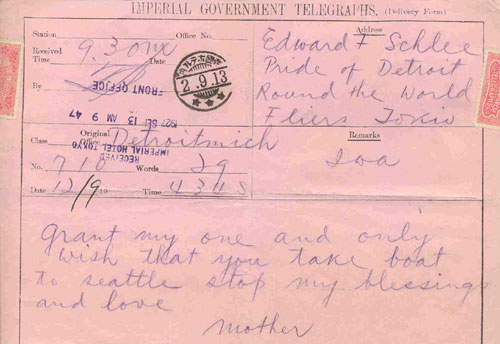 IMPERIAL GOVERNMENT TELEGRAPHS. (Delivery Form)
Station Office No.
Received Time 9.30 Date
By
2.9.13
FRONT OFFICE
1927 SEP 13 AM 9 47
RECEIVED
IMPERIAL HOTEL TOKYO
Class Original Office Detroitmich
No. 719 Words 29
Date 12/9 19 Time 434S
Address
Edward F Schlee
Pride of Detroit
Round the World
Fliers Tokio
Remarks
grant my one and only
wish that you take boat
to seattle stop my blessings
and love
mother